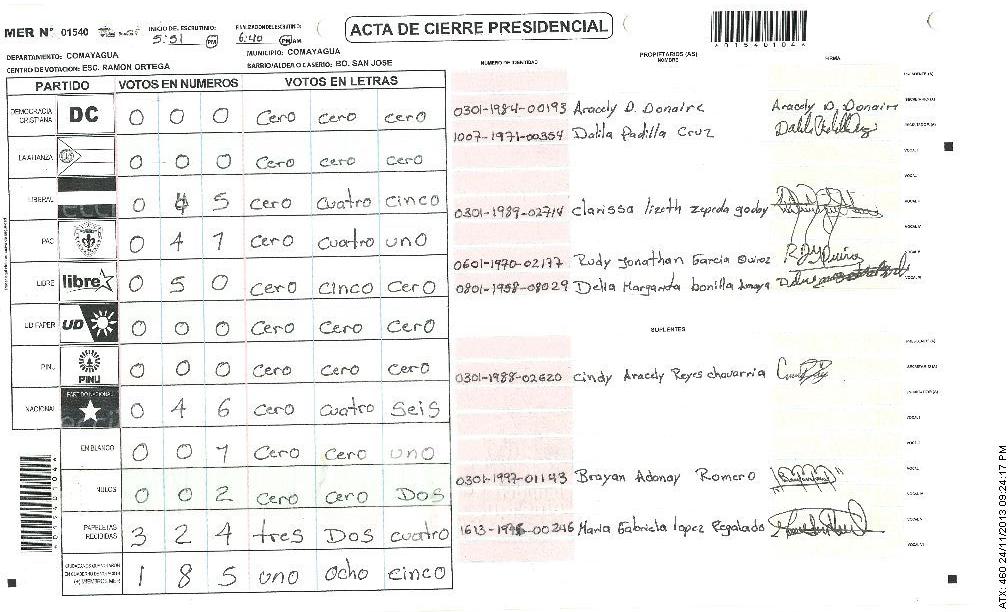 MER Nº 01540
INICIO DEL ESCRUTINIO: 5:51 PM
FINALIZACION DEL ESCRUTINIO: 6:40 PM AM
ACTA DE CIERRE PRESIDENCIAL
DEPARTAMENTO: COMAYAGUA
MUNICIPIO: COMAYAGUA
CENTRO DE VOTACION: ESC. RAMON ORTEGA
BARRIO/ALDEA O CASERIO: BO. SAN JOSE
PARTIDO VOTOS EN NUMEROS VOTOS EN LETRAS
DEMOCRACIA CRISTIANA DC 0 0 0 cero cero cero
LA ALIANZA 0 0 0 cero cero cero
LIBERAL 0 4 5 cero cuatro cinco
PAC 0 4 1 cero cuatro uno
LIBRE libre 0 5 0 cero cinco cero
UD FAPER UD 0 0 0 cero cero cero
PINU PINU 0 0 0 cero cero cero
NACIONAL PARTIDO NACIONAL 0 4 6 cero cuatro seis
EN BLANCO 0 0 1 cero cero uno
NULOS 0 0 2 cero cero Dos
PAPELETAS RECIBIDAS 3 2 4 tres Dos cuatro
1 8 5 uno ocho cinco
NUMERO DE IDENTIDAD PROPIETARIOS (AS) NOMBRE FIRMA
0301-1984-00193 Aracely D. Donaire Aracely D. Donaire
1007-1971-00354 Dalila Padilla Cruz
0301-1989-02714 Clarissa lizeth zepeda godoy
0601-1970-02177 Rudy Jonathan Garcia Quiroz
0801-1958-08029 Delia Margarita bonilla
SUPLENTES
0301-1988-02620 Cindy Aracely Reyes chavarria
0301-1997-01143 Brayan Adonay Romero
1613-1995-00246 Maria Gabriela lopez Regalado
ATX: 460 24/11/2013 09:24:17 PM